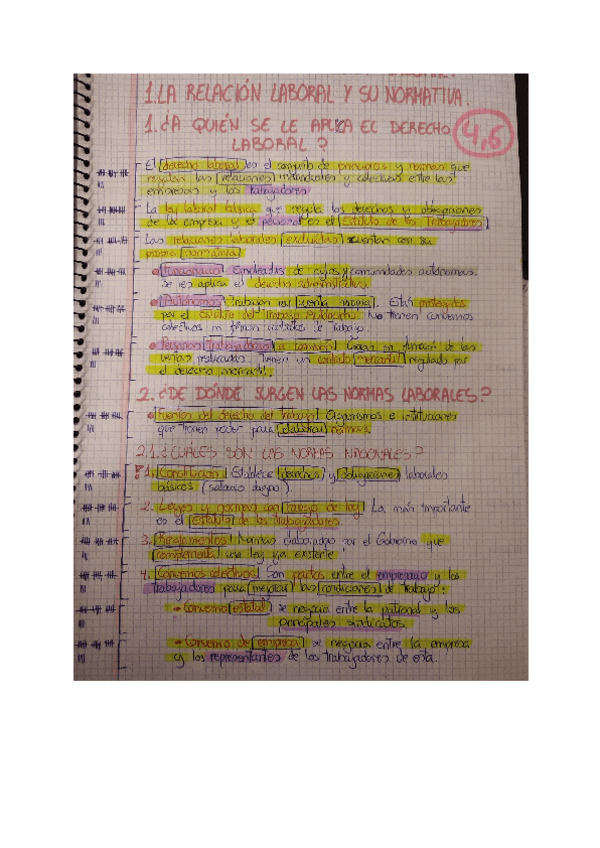 1. LA RELACIÓN LABORAL Y SU NORMATIVA.
1. ¿A QUIÉN SE LE APLICA EL DERECHO
LABORAL?
4,6
El derecho laboral es el conjunto de principios y normas que
regulan las relaciones individuales y colectivas entre las
empresas y los trabajadores
La ley laboral básica que regula los derechos y obligaciones
de la empresa y el personal es el Estatuto de los Trabajadores
Las relaciones laborales excluidas cuentan con su
propia normativa
Funcionarios Empleados de y comunidades autónomas.
Se les aplica el derecho administrativo.
Autónomos Trabajan por cuenta propia. Están protegidos
por el Estatuto del Trabajo Autónomo. No tienen convenios
colectivos ni firman contratos de trabajo.
Personas trabajadoras a comisión en función de las
ventas realizadas. Tienen un contrato mercantil regulado por
el derecho mercantil.
2. ¿DE DÓNDE SURGEN LAS NORMAS LABORALES?
Fuentes del derecho del trabajo Organismos e instituciones
que tienen poder para elaborar normas.
2.1. ¿CUÁLES SON LAS NORMAS NACIONALES?
1. Constitución Establece derechos y obligaciones laborales
básicos (salario digno).
2. Leyes y normas con rango de ley La más importante
es el estatuto de los trabajadores.
3. Reglamentos Normas elaboradas por el Gobierno que
complementa una ley ya existente
4. Convenios colectivos Son pactos entre el empresario y los
trabajadores para mejorar las condiciones de trabajo:
Convenio estatal se negocia entre la patronal y los
principales sindicatos.
Convenio de empresa se negocia entre la empresa
y los representantes de los trabajadores de esta.